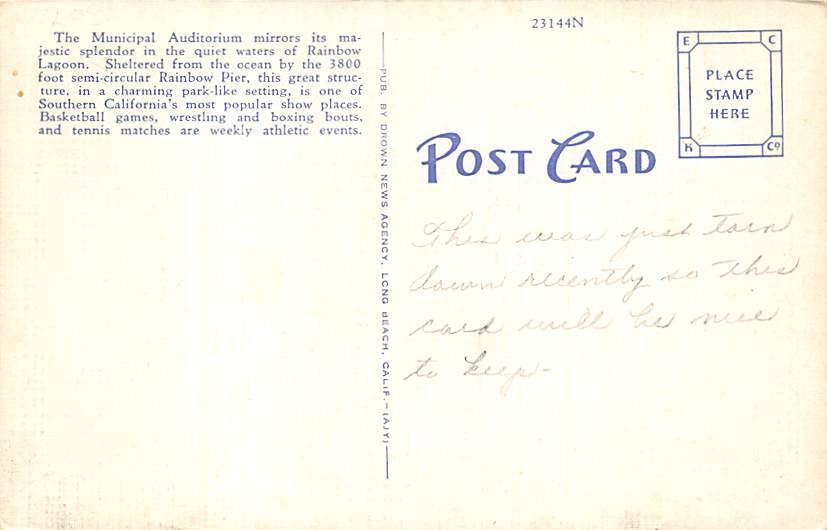 23144N
The Municipal Auditorium mirrors its ma-
jestic splendor in the quiet waters of Rainbow
Lagoon. Sheltered from the ocean by the 3800
foot semi-circular Rainbow Pier, this great struc-
ture, in a charming park-like setting, is one of
Southern California's most popular show places.
Basketball games, wrestling and boxing bouts,
and tennis matches are weekly athletic events.
PUB. BY DROWN NEWS AGENCY, LONG BEACH, CALIF.—(AJY)
POST CARD
E C
PLACE
STAMP
HERE
K Co
This was just torn
down recently so this
card will be nice
to keep-